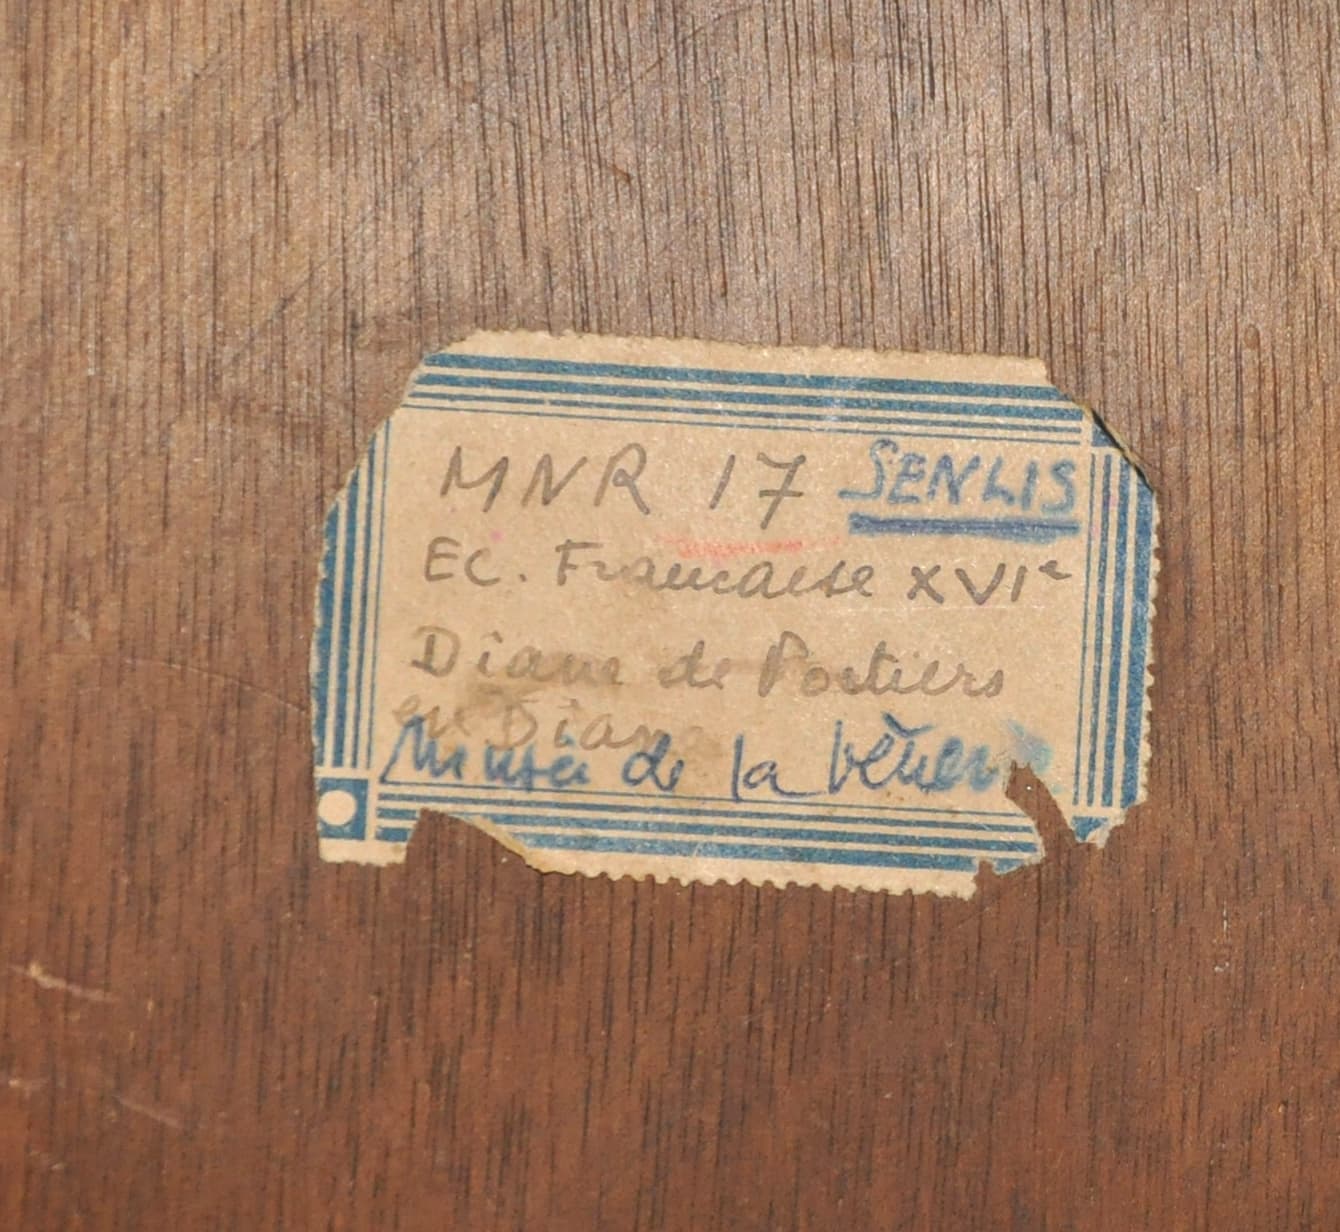 MNR 17 SENLIS
EC. Francaise XVIe
Diane de Poitiers
en Diane
Musée de la Vénerie